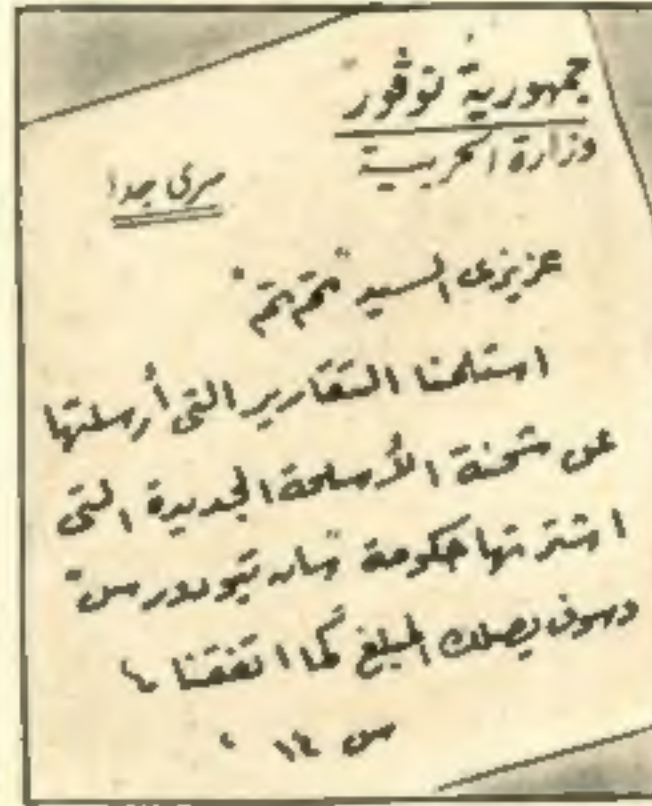 جمهورية نوڤور
وزارة الحربية
سرى جدا
عزيزى السيد "تم تم"
استلمنا التقارير التى أرسلتها
عن شحنة الأسلحة الجديدة التى
اشترتها حكومة "سان تيودورس"
وسوف يصلك المبلغ كما اتفقنا
س ١٤